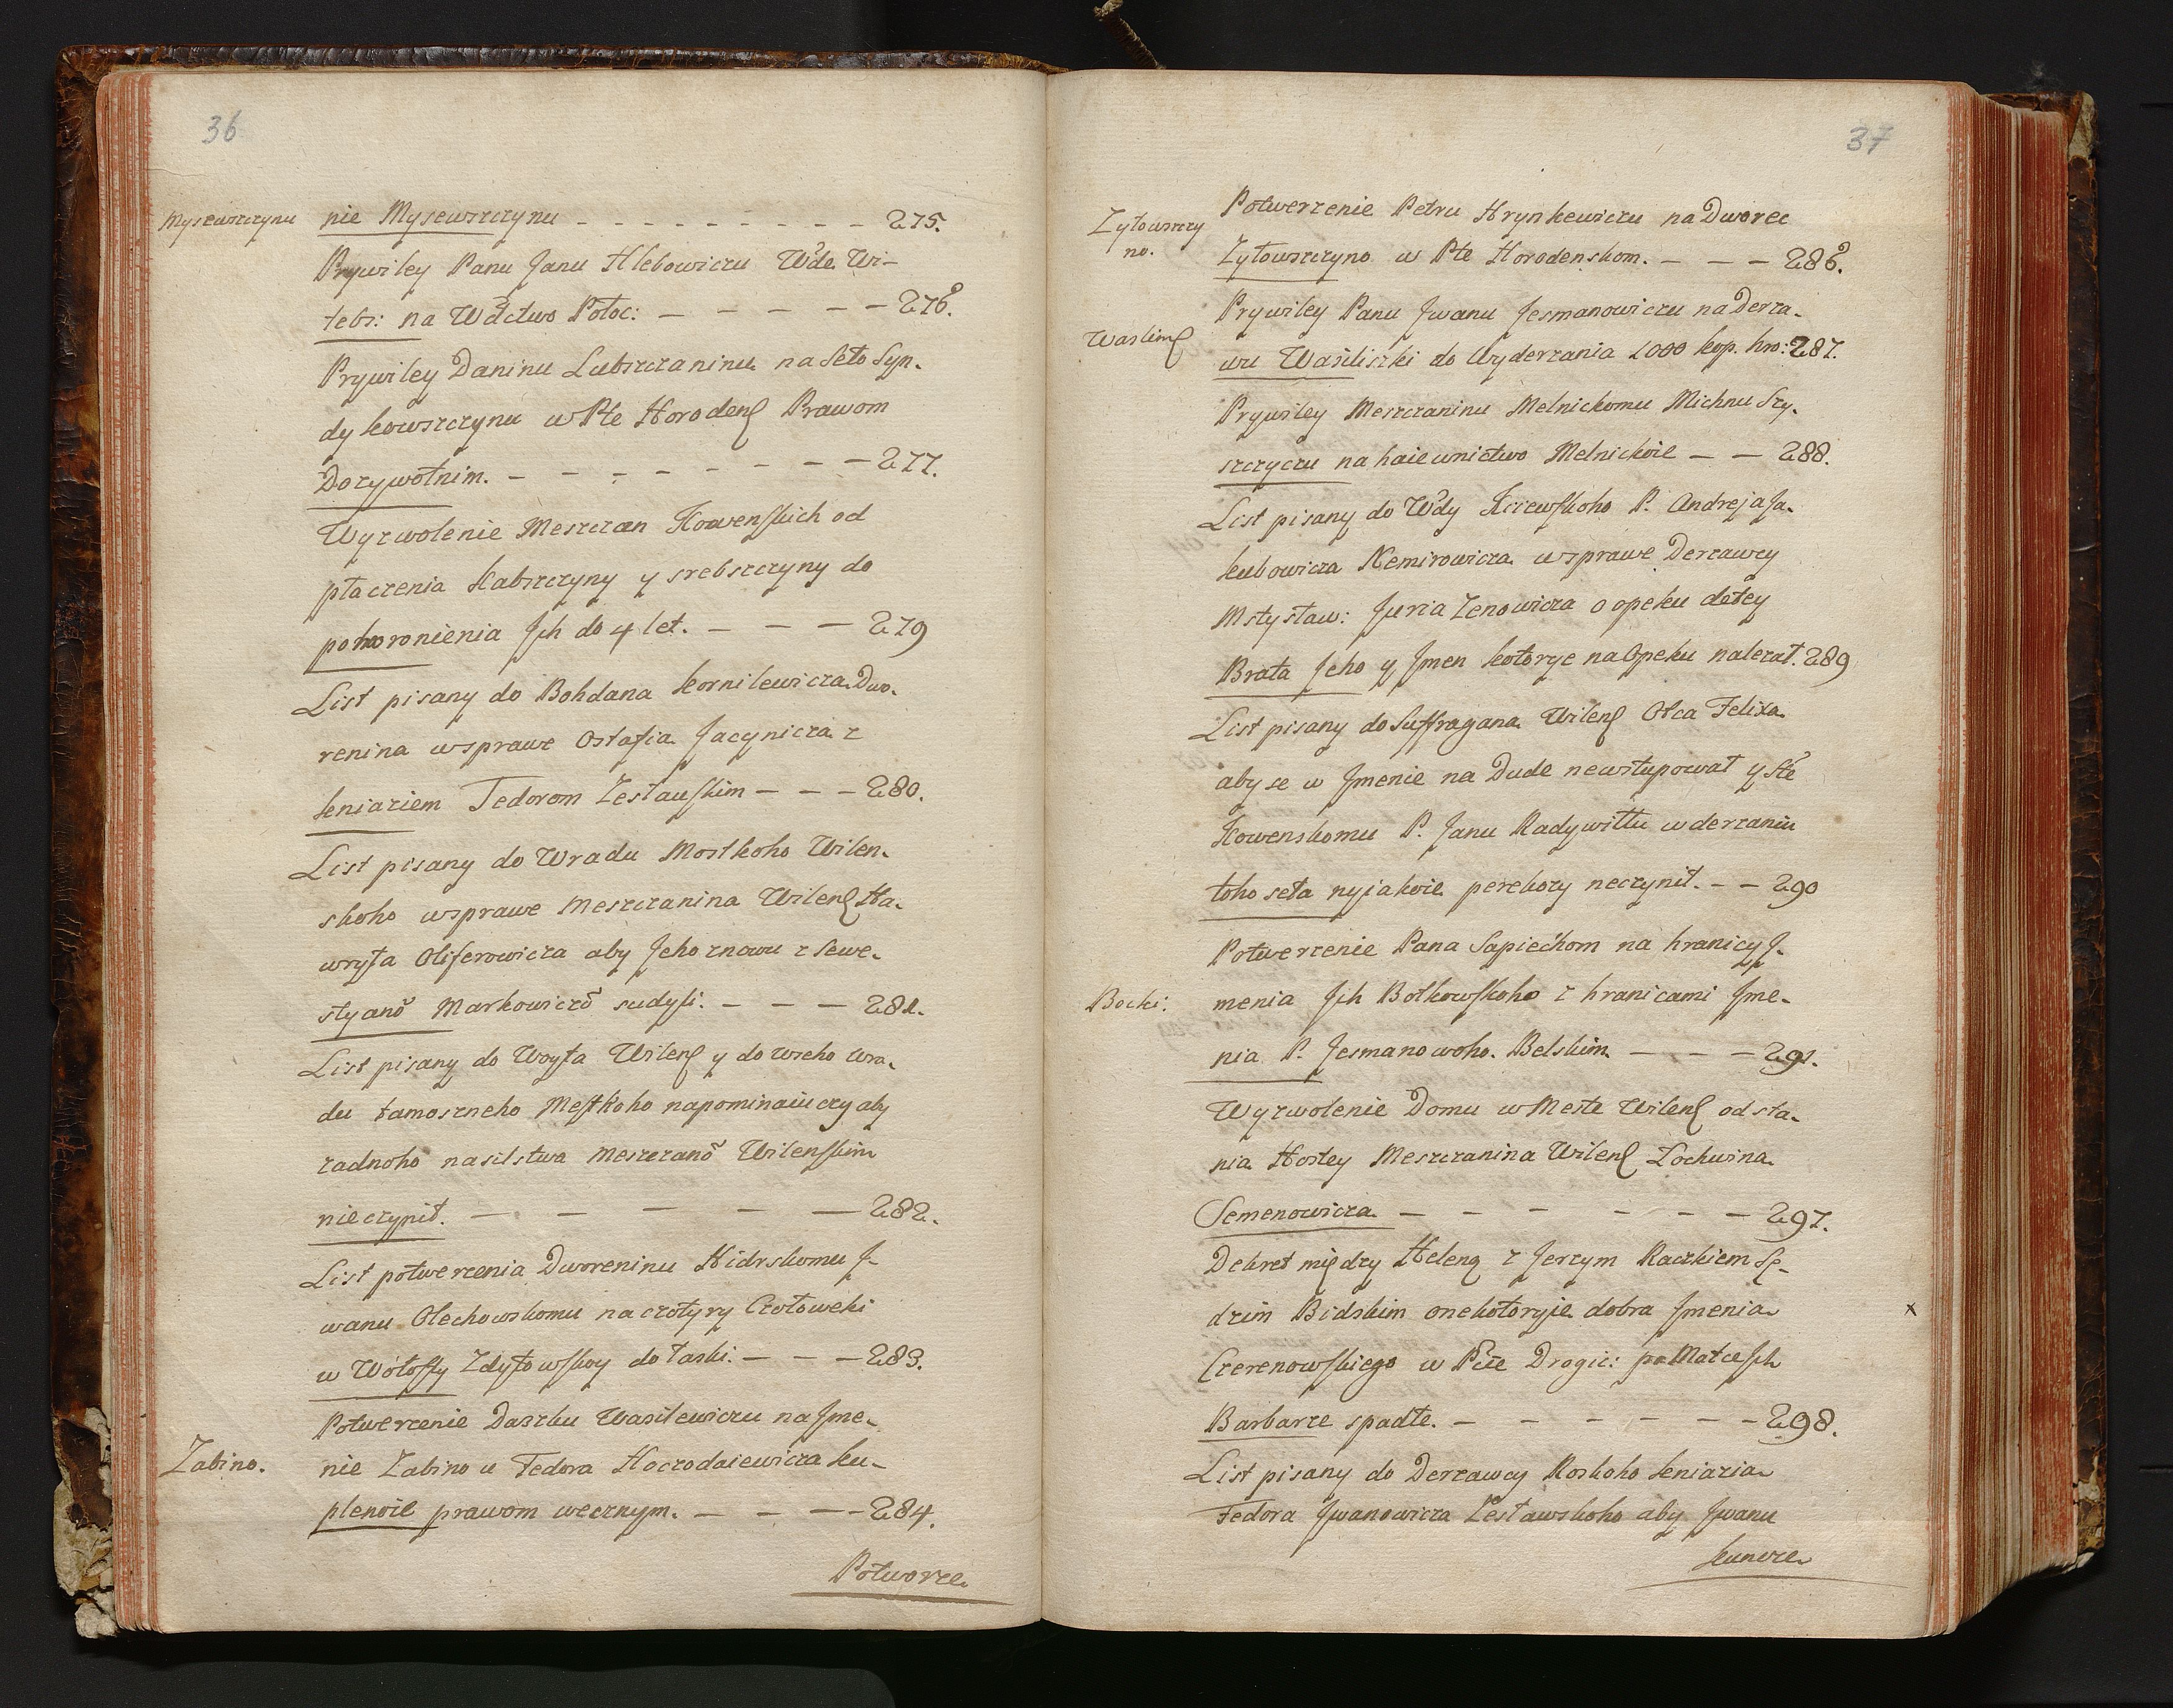 36
Mysewszczynu
nie Mysewszczynu - - - - - - - - - 275.
Prywiley Panu Janu Hlebowiczu Wde Wi-
tebs: na Wdctwo Połoc: - - - - - 276.
Prywiley Daninu Lubszczaninu na Seło Syn-
dykowszczynu w Pte Horoden Prawom
Dozywotnim. - - - - - - - - 277.
Wyzwolenie Meszczan Kowenskich od
płaczenia Kabszczyny y srebszczyny do
pohoronienia Jch do 4 let. - - - 279
List pisany do Bohdana Kornilewicza Dwo-
renina wsprawe Ostafia Jacynicza z
Kniaziem Fedorom Zesławskim - - - 280.
List pisany do Wradu Mostkoho Wilen-
skoho wsprawe Meszczanina Wilen Ha-
wryła Oliferowicza aby Jeho znowu z Sewe-
styano Markowiczo sudyli. - - - 281.
List pisany do Woyta Wilen y do wseho Wra-
du tamoszneho Mestkoho napominaiuczy aby
zadnoho nasilstwa Meszczano Wilenskim
nieczynił. - - - - - 282.
List potwerzenia Dworeninu Hidrskomu J-
wanu Olechowskomu na czotyry Czołoweki
w Wołosty Zdytowskoy do łaski. - - - 283.
Potwerzenie Daszku Wasilewiczu na Jme-
Zabino.
nie Zabino u Fedora Hoczodaiewicza ku-
plenoie prawom wecznym. - - - - 284.
Potworze
37
Zytowszczy
no.
Potwerzenie Petru Hrynkewiczu na Dworec
Zytowszczyno w Pte Horodenskom. - - - 286.
Prywiley Panu Jwanu Jesmanowiczu na Derza-
Wasilen
wu Wasiliszki do Wyderzania 1000 kop. hro: 287.
Prywiley Meszczaninu Melnickomu Michnu Szy-
szczyczu na haiewnictwo Melnickoie - - 288.
List pisany do Wdy Kiiewskoho P. Andreja Ja-
kubowicza Nemirowicza wsprawe Derzawcy
Mstysław: Juria Zenowicza o opeku detey
Brata Jeho y Jmen kotorye na Opeku nalezat. 289
List pisany do Suffragana Wilen Otca Felixa
aby se w Jmenie na Dude newstupował y Ste
Kowenskomu P. Janu Radywiłłu w derzaniu
toho seła nyjakoie perekozy neczynił. - - 290
Potwerzenie Pana Sapiechom na hranicy J-
Bocki:
menia Jch Botkowskoho z hranicami Jme-
nia P. Jesmanowoho. Belskim - - - 291.
Wyzwolenie Domu w Meste Wilen od sta-
nia Hostey Meszczanina Wilen Lochwina
Semenowicza - - - - - - 297.
Dekret między Heleną z Jerzym Raczkiem Sę-
dzim Bidskim onekotoryje dobra Jmenia
x
Czerenowskiego w Pcie Drogic: po Matce Jch
Barbarze spadłe. - - - - - - 298.
List pisany do Derzawcy Roskoho Kniazia
Fedora Jwanowicza Zesławskoho aby Jwanu
Kuncze